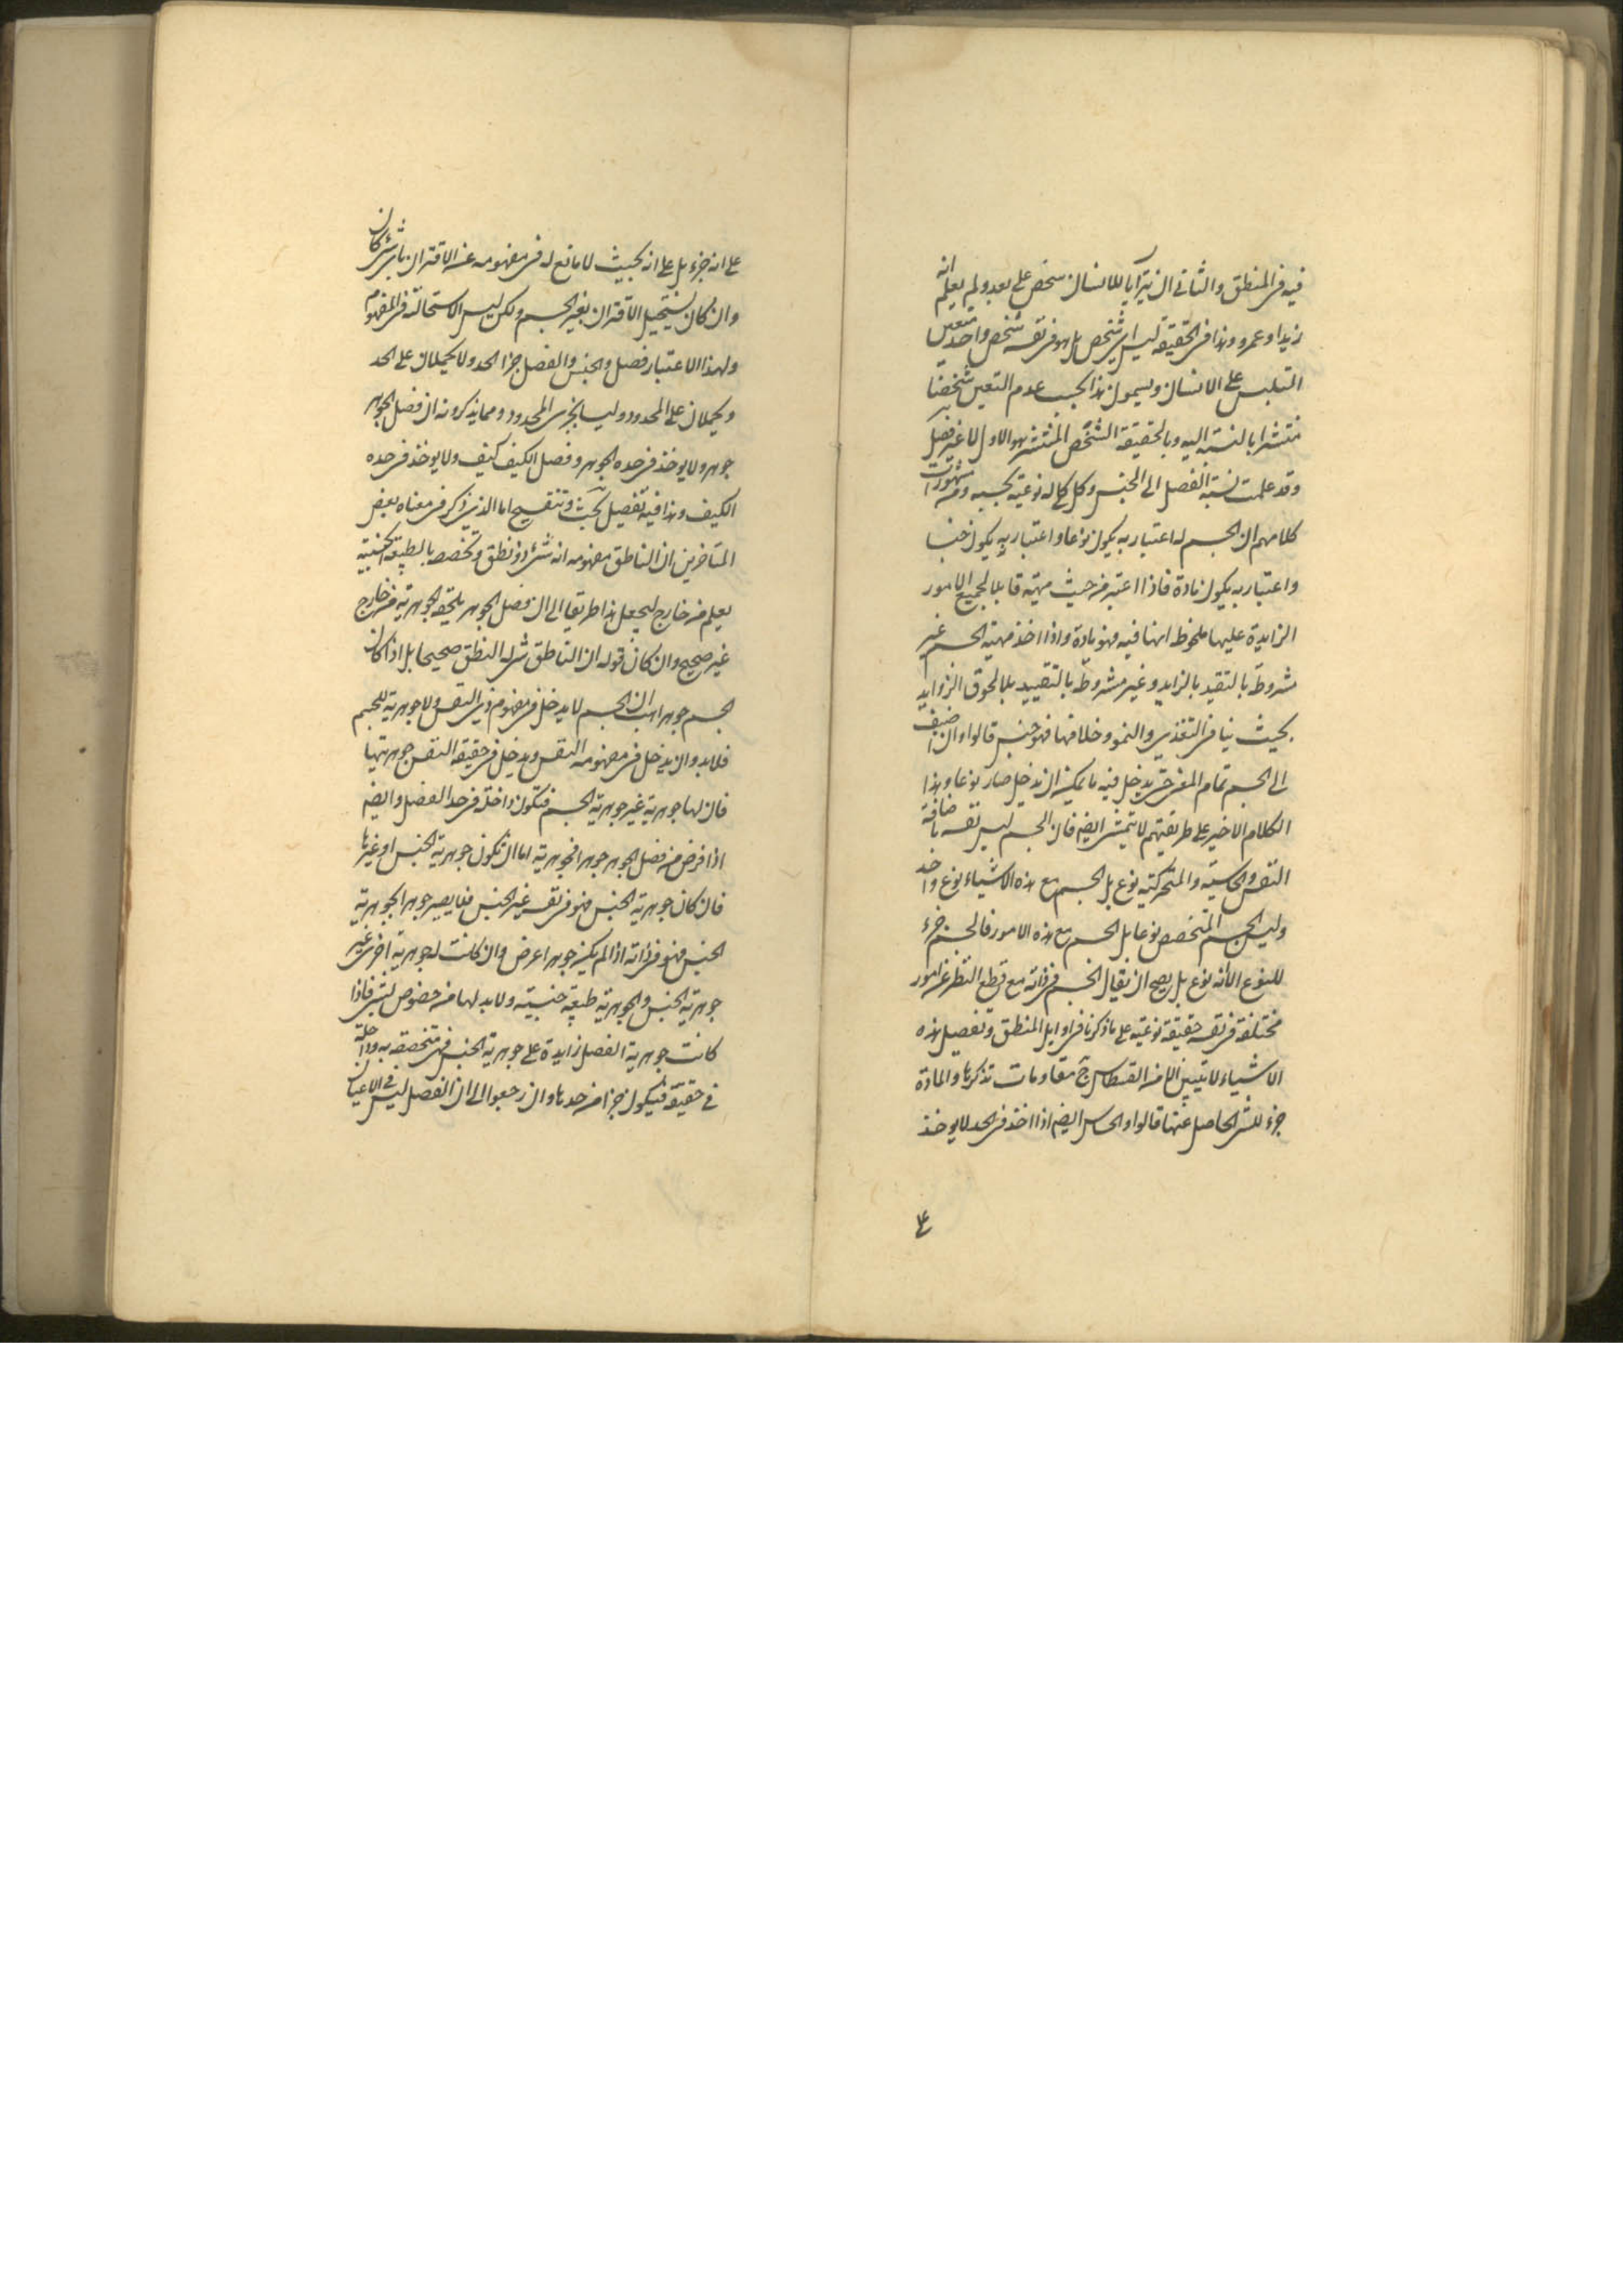 فيه في المنطق والثاني ان يترايا للانسان شخص على بعد ولم يعلم انه
زيد او عمرو وهذا في الحقيقة ليس اي شخص بل هو في نفسه شخص واحد متعين
التلبس على الانسان ويسمون هذا بحسب عدم التعين شخصا
منتشرا بالنسبة اليه وبالحقيقة الشخص المنتشر هو الاول لا غير فصل
وقد علمت نسبة الفصل الى الجنس وكل كماله نوعية بحسبه ومن مشهورات
كلامهم ان الجسم له اعتبار به يكون نوعا واعتبار به يكون جنسا
واعتبار به يكون مادة فاذا اعتبر من حيث مهية قابلا لجميع الامور
الزايدة عليها ملحوظ انها فيه فهو مادة واذا اخذ مهية الجسم غير
مشروطة بالتقيد بالزايد وغير مشروطة بالتقييد بلا لحوق الزوايد
بحيث ينافي التغذي والنمو وخلافها فهو جنس قالوا وان اضيف
الى الجسم تمام المعنى حتى يدخل فيه ما يمكن ان يدخل صار نوعا وهذا
الكلام الاخير على طريقتهم لا يتمشى ايضا فان الجسم ليس نفسه باضافة
النفس والحاسية والمتحركية نوع بل الجسم مع هذه الاشياء نوع واحد
وليس الجسم المتخصص نوعا بل الجسم مع هذه الامور فالجسم جزء
للنوع لا انه نوع بل يصح ان يقال الجسم في ذاته مع قطع النظر عن امور
مختلفة في نفسه حقيقة نوعية على ما ذكرنا في اوايل المنطق وتفصيل هذه
الاشياء لا يتبين الا من القسطاس ثم مقاومات نذكرها والمادة
جزء للشيء الحاصل عنها قالوا والحساس ايضا اذا اخذ في الحد لا يوخذ
على
على انه جزء بل على انه بحيث لا مانع له في مفهومه عن الاقتران باي شيء كان
وان كان يستحيل الاقتران بغير الجسم ولكن ليس الاستحالة في المفهوم
ولهذا الاعتبار فصل والجنس والفصل جزءا الحد ولا يحملان على الحد
ويحملان على المحدود وليسا بجزئي المحدود ومما يذكرونه ان فصل الجوهر
جوهر ولا يوخذ في حده الجوهر وفصل الكيف كيف ولا يوخذ في حده
الكيف وهذا فيه تفصيل بحث وتنقيح اما الذي ذكر في معناه بعض
المتاخرين ان الناطق مفهومه انه شيء ذو نطق وتخصصه بالطبيعة الجنسية
يعلم من خارج ليجعل هذا طريقا الى ان فصل الجوهر يلحقه الجوهرية من خارج
غير صحيح وان كان قوله ان الناطق شيء له النطق صحيحا بل اذا كان
الجسم جوهرا ان الجسم لا يدخل في مفهوم ذي النفس ولا جوهرية للجسم
فلا بد وان يدخل في مفهومه النفس ويدخل في حقيقة النفس جوهريتها
فان لها جوهرية غير جوهرية الجسم فتكون داخلة في حد الفصل وايضا
اذا فرض من فصل الجوهر جوهرا فجوهريته اما ان تكون جوهرية الجنس او غيرها
فان كان جوهرية الجنس فهو في نفسه غير الجنس فما يصير جوهرا بجوهرية
الجنس فهو في ذاته اذا لم يكن جوهرا عرض وان كانت له جوهرية اخرى غير
جوهرية الجنس والجوهرية طبيعة جنسية ولا بد لها من خصوص بشيء فاذا
كانت جوهرية الفصل زايدة على جوهرية الجنس فهي متخصصة به وداخلة
في حقيقته فيكون جزءا من حدها وان رجعوا الى ان الفصل ليس في الاعيان